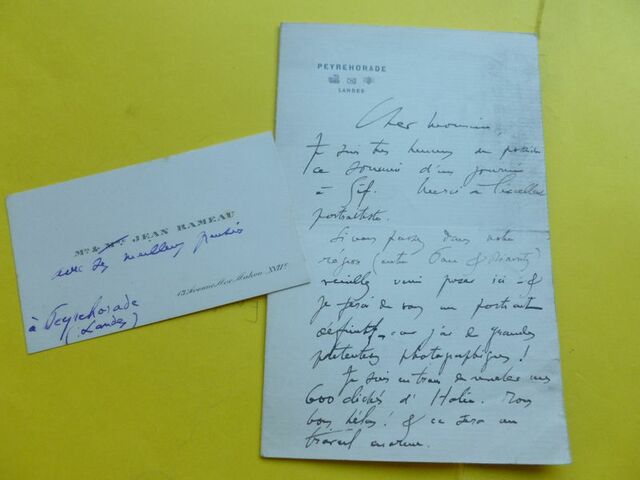 PEYREHORADE
LANDES
Cher monsieur,
Je suis très heureux de posséder
ce souvenir d'une journée
à Gif. Merci à l'excellent
portraitiste.
Si vous passez dans notre
région (entre Pau & Biarritz)
veuillez venir poser ici &
je ferai de vous un portrait
définitif, car j'ai de grandes
prétentions photographiques!
Je suis en train de
600 clichés d'Italie. Tous
bons, hélas! & ce sera un
travail énorme.
Mr & Mme JEAN RAMEAU
avec ses meilleures pensées
13 Avenue Mac-Mahon, XVIIe
à Peyrehorade
(Landes)